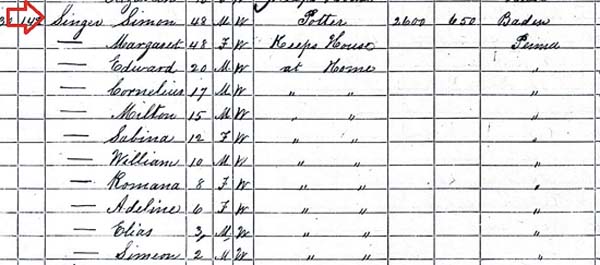 149 Singer Simon 48 M W Potter 2600 650 Baden
— Margaret 48 F W Keeps House Penna
— Edward 20 M W at Home "
— Cornelius 17 M W " " "
— Milton 15 M W " " "
— Sabina 12 F W " " "
— William 10 M W " " "
— Romana 8 F W " " "
— Adeline 6 F W " " "
— Elias 3 M W " " "
— Simeon 2 M W " " "